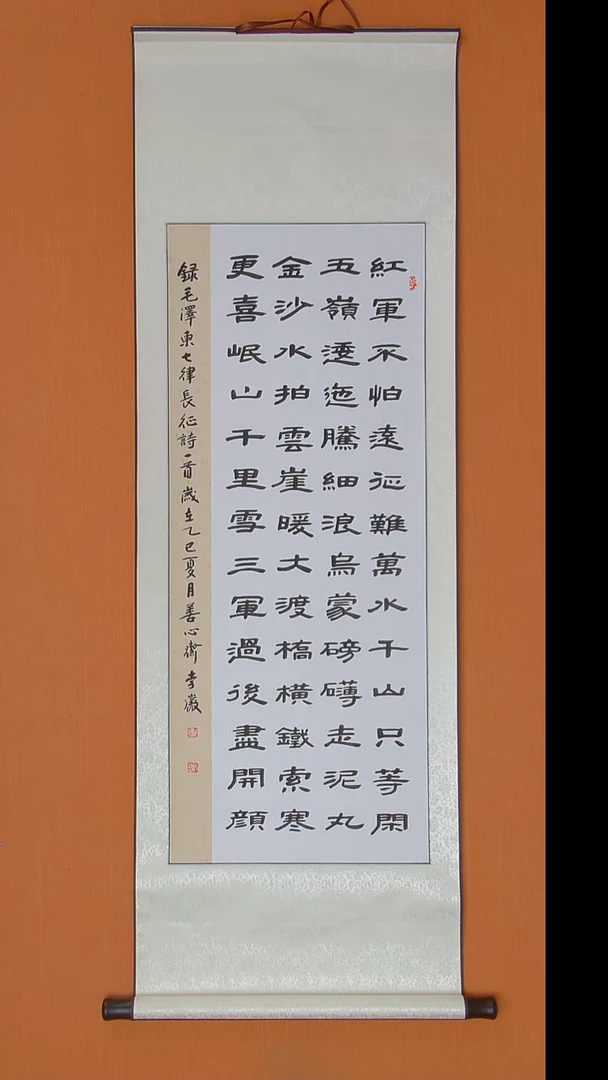 紅軍不怕遠征難萬水千山只等閑
五嶺逶迤騰細浪烏蒙磅礴走泥丸
金沙水拍雲崖暖大渡橋橫鐵索寒
更喜岷山千里雪三軍過後盡開顔
録毛澤東七律長征詩一首歲在乙巳夏月善心齋